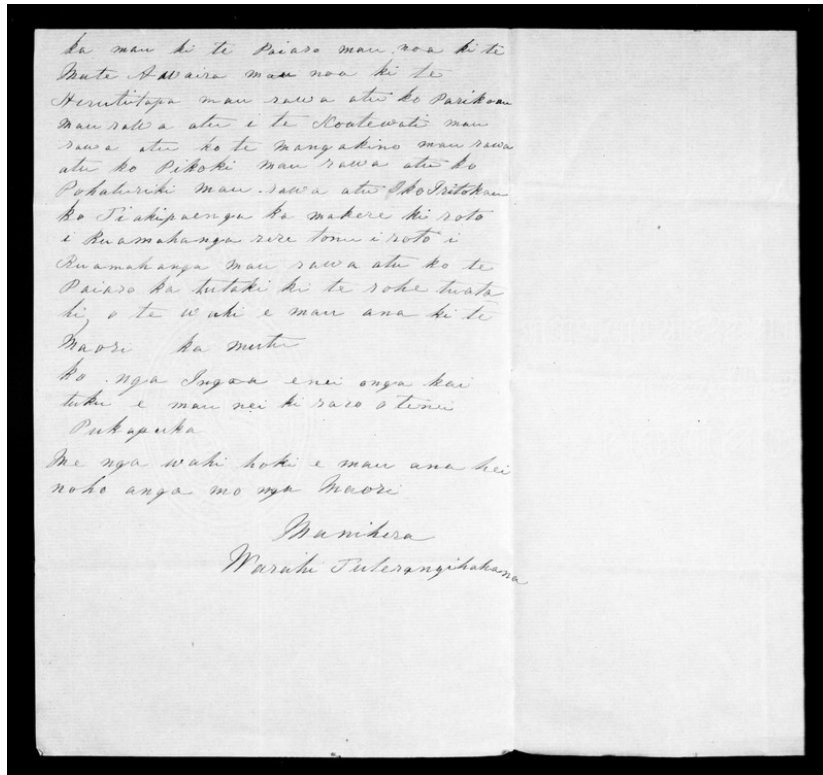 ka mau ki te Paiaro mau noa ki te
Mate Awaira mau noa ki te
Herutitapa mau rawa atu ko Parikoau
mau rawa atu i te Koatewati mau
rawa atu ko te Mangakino mau rawa
atu ko Pikoki mau rawa atu ko
Pohaturiki mau rawa atu ko Iritokau
ko Tiakipaenga ka makere ki roto
i Ruamahanga rere tonu i roto i
Ruamahanga mau rawa atu ko te
Paiaro ka tutaki ki te rohe tuata
hi, o te wahi e mau ana ki te
Maori ka mutu
ko nga Ingoa enei onga kai
tuku e mau nei ki raro o tenei
Pukapuka
Me nga wahi hoki e mau ana hei
noho anga mo nga Maori
Manihera
Warahi Tuterangihakaona